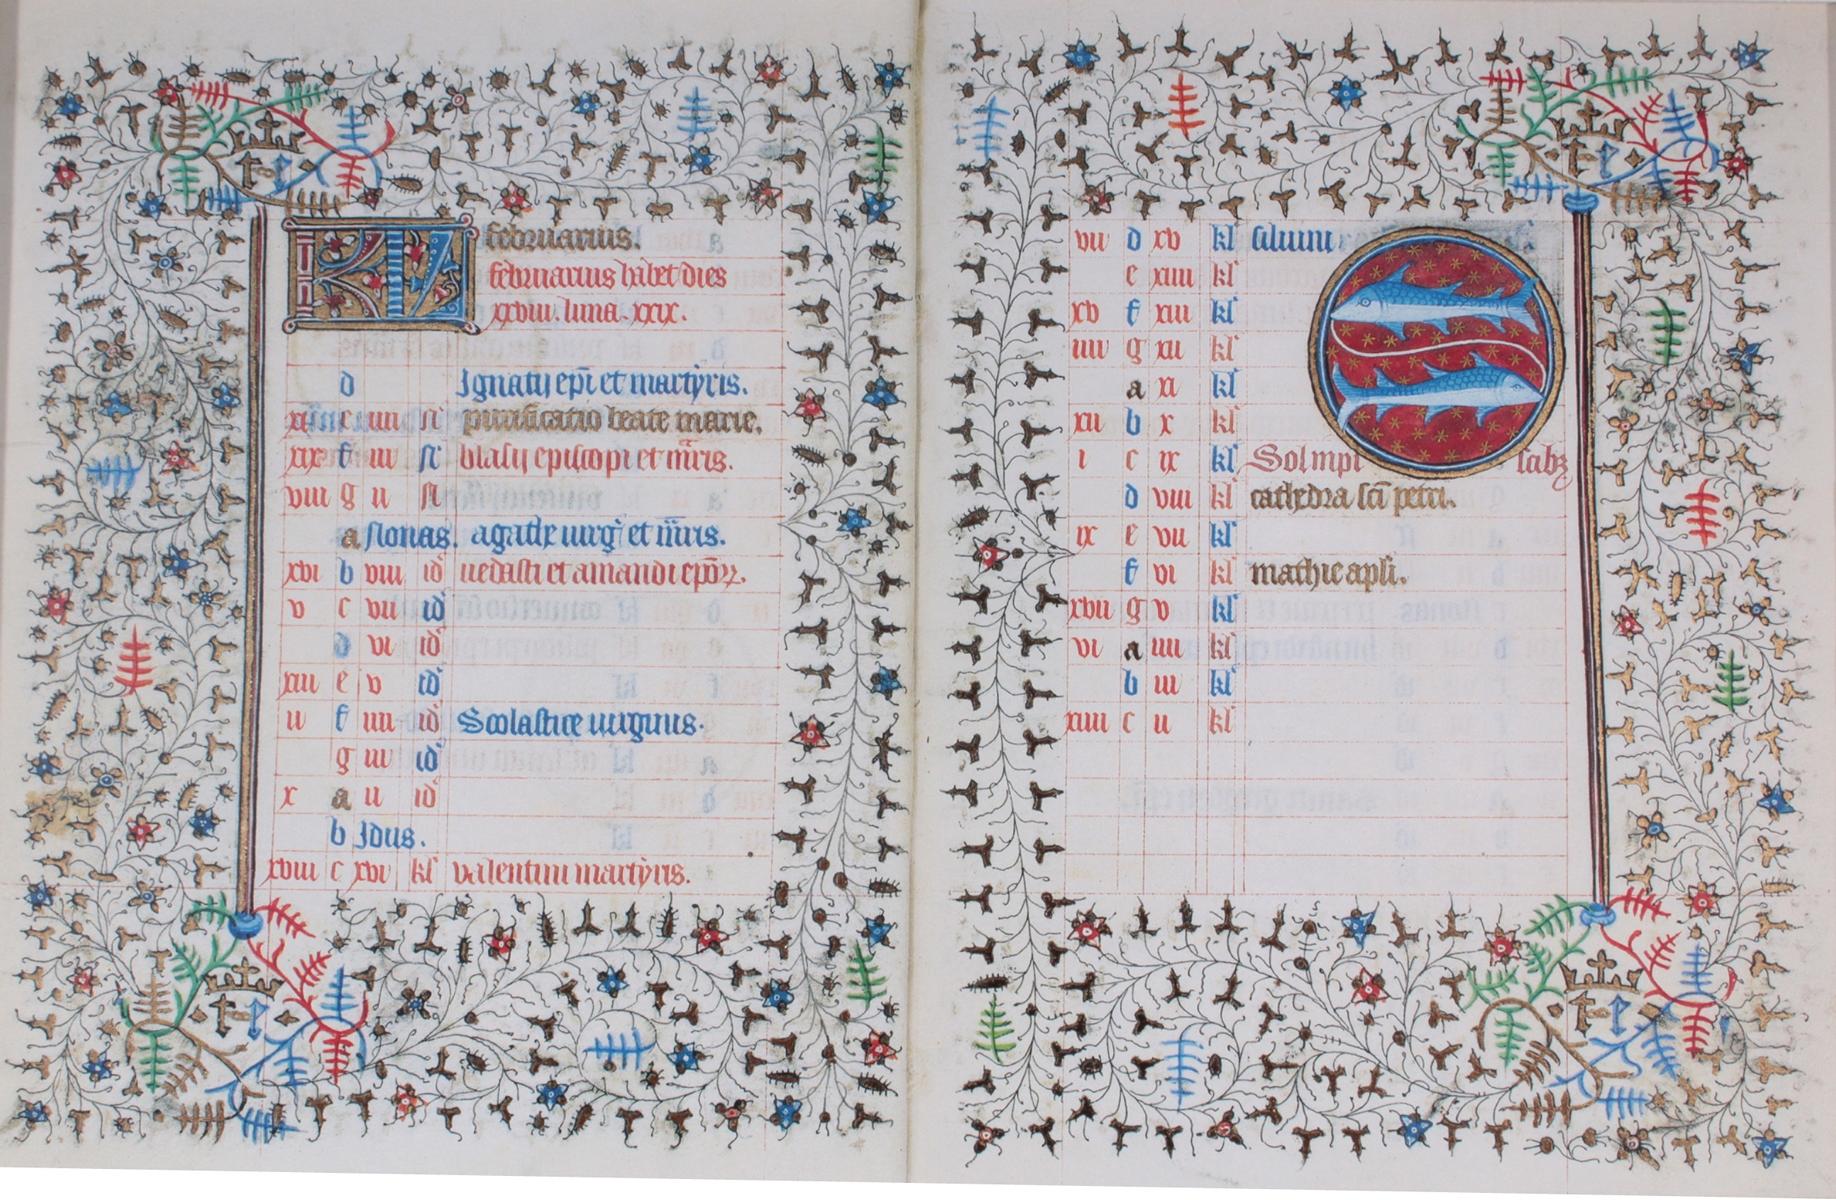 KL februarius.
februarius habet dies
xxviii. luna. xxix.
d Ignatij epi et martyris.
xi e iiii N purificatio beate marie.
xix f iii N blasij episcopi et mris.
viii g ii N
a Nonas. agathe uirg et mris.
xvi b viii id uedasti et amandi
v c vii id
d vi id
xiii e v id
ii f iiii id Scolastice uirginis.
g iii id
x a ii id
b Idus.
xviii c xvi kl valentini martyris.
vii d xv kl
e xiiii kl
xv f xiii kl
iiii g xii kl
a xi kl
xii b x kl
i c ix kl Sol
d viii kl cathedra sci petri.
ix e vii kl
f vi kl mathie apli.
xvii g v kl
vi a iiii kl
b iii kl
xiiii c ii kl